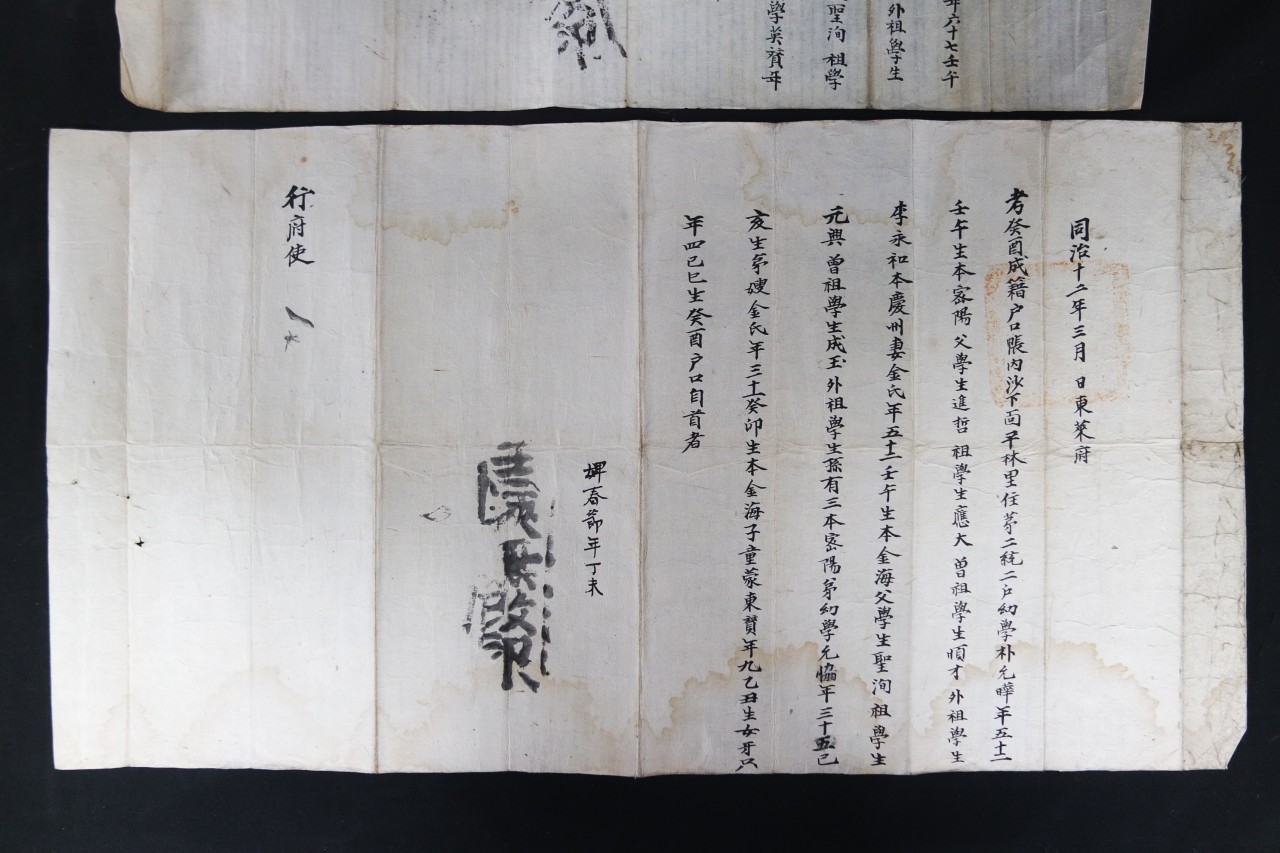 年六十七壬午
外祖學生
聖洵 祖學
學英贊年
同治十二年三月 日東萊府
考癸酉成籍户口帳內沙下面平林里住苐二統二户幼學朴允曄年五十二
壬午生本密陽 父學生進哲 祖學生應大 曾祖學生順才 外祖學生
李永和本慶州妻金氏年五十二壬午生本金海父學生聖洵 祖學生
元興 曾祖學生成玉 外祖學生孫有三本密陽苐幼學允恊年三十五己
亥生苐嫂金氏年三十一癸卯生本金海子童蒙東贊年九乙丑生女牙只
年四己巳生癸酉户口自首者
婢春節年丁未
行府使